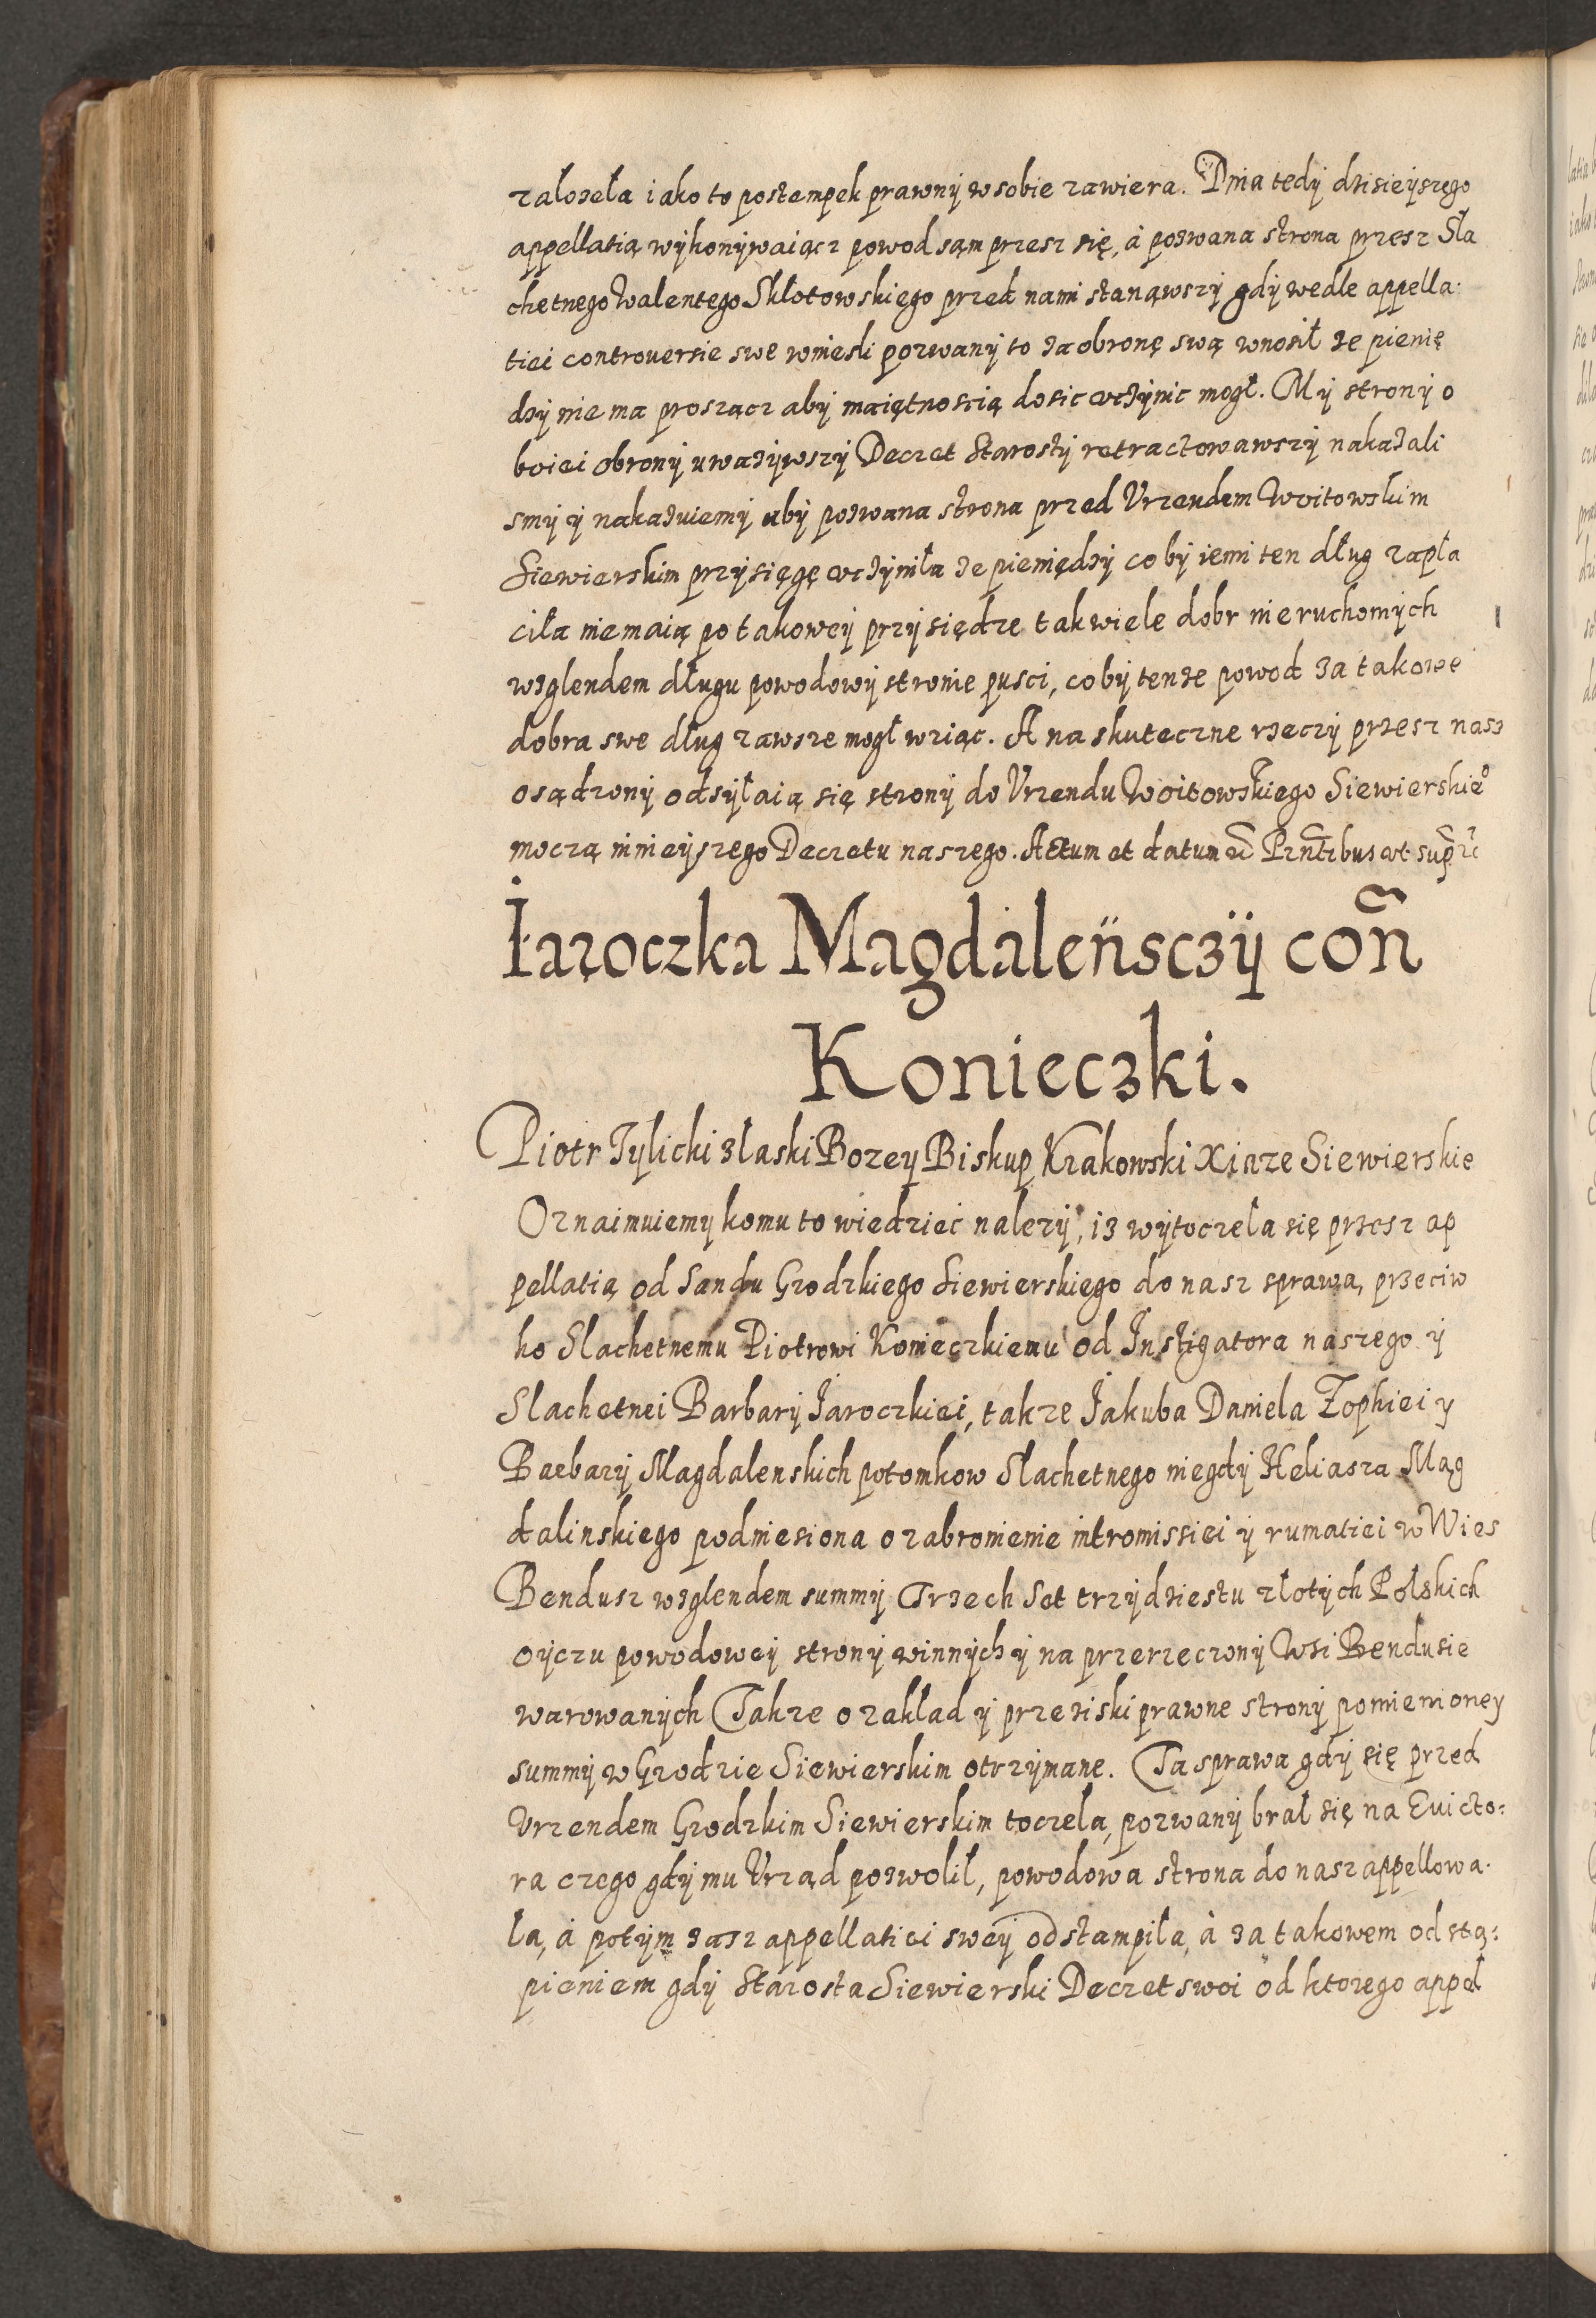 załozeła iako to postempek prawnÿ w sobie zawiera. Dnia tedÿ dzisieÿszego
appellatią wÿkonÿwaiącz powod sąm przesz się, á pozwana strona przesz Sla
chetnego Walentego Skłotowskiego przed nami stanąwszÿ gdÿ wedle appella-
tiei controuersie swe wniesli pozwanÿ to za obronę swą wnosił ze pienię
dzÿ nie ma proszącz abÿ maiętnoscią dosic vczÿnic mogł. Mÿ stronÿ o
boiei obronÿ uwazÿwszÿ Decret Starostÿ retractowawszÿ nakazali
smÿ ÿ nakazuiemÿ abÿ pozwana strona przed Vrzendem Woitowskim
Siewierskim przÿsięgę vczÿniła ze pieniędzÿ co bÿ iemi ten dług zapła
ciła nie maią po takoweÿ przÿsiędze tak wiele dobr nieruchomÿch
wzglendem długu powodowÿ stronie pusci, co bÿ tenze powod za takowe
dobra swe dług zawsze mogł wziąc. A na skuteczne rzeczÿ przesz nasz
osądzonÿ odsÿłaią się stronÿ do Vrzendu Woitowskiego Siewierskieo
moczą ninieÿszego Decretu naszego. Actum et datum uc̃ Prñtibus vt supr̃ uc̃
Iaroczka Magdaleńsczÿ coñ
Konieczki.
Piotr Tylicki z łaski Bozey Biskup Krakowski Xiaze Siewierskie
Oznaimuiemy komu to wiedziec nalezÿ, iz wÿtoczeła się przesz ap
pellatią od Sandu Grodzkiego Siewierskiego do nasz sprawa, przeciw
ko Slachetnemu Piotrowi Konieczkiemu od Instigatora naszego ÿ
Slachetnei Barbarÿ Iaroczkiei, takze Jakuba Daniela Zophiei y
Barbarÿ Magdalenskich potomkow Slachetnego niegdÿ Heliasza Mag
dalinskiego podniesiona o zabronienie intromissiei ÿ rumatiei w Wies
Bendusz wzglendem summÿ Trzech Set trzÿdziestu złotÿch Polskich
oÿczu powodoweÿ stronÿ winnÿch ÿ na przerzeczonÿ Wsi Bendusie
warowanÿch Takze o zakład ÿ przeziski prawne stronÿ pomienioney
summÿ w Grodzie Siewierskim otrzÿmane. Ta sprawa gdÿ się przed
Vrzendem Grodzkim Siewierskim toczeła, pozwanÿ brał się na Euicto-
ra czego gdÿ mu Vrząd pozwolił, powodowa strona do nasz appellowa-
ła, á potÿm zasz appellatiei sweÿ odstampiła, à za takowem odstą-
pieniem gdÿ Starosta Siewierski Decret swoi od ktorego appel